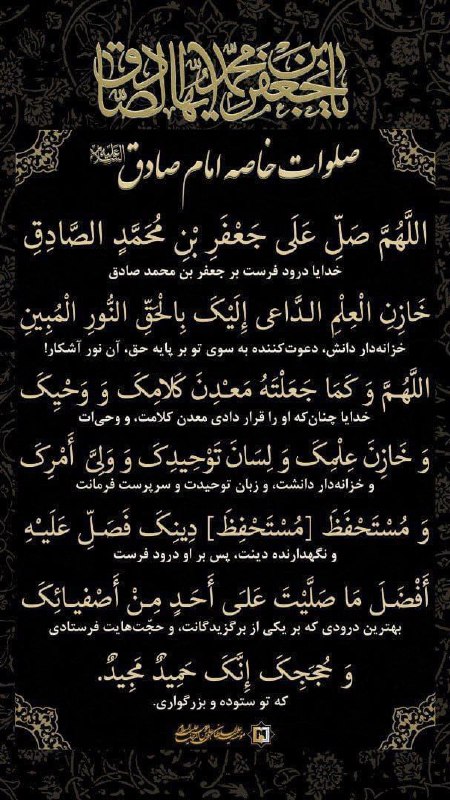 یا جعفر بن محمد ایها الصادق
صلوات خاصه امام صادق علیه‌السلام
اللَّهُمَّ صَلِّ عَلَى جَعْفَرِ بْنِ مُحَمَّدٍ الصَّادِقِ
خدایا درود فرست بر جعفر بن محمد صادق
خَازِنِ الْعِلْمِ الدَّاعی إِلَیْکَ بِالْحَقِّ النُّورِ الْمُبِینِ
خزانه‌دار دانش، دعوت‌کننده به سوی تو بر پایه حق، آن نور آشکار!
اللَّهُمَّ وَ کَمَا جَعَلْتَهُ مَعْدِنَ کَلَامِکَ وَ وَحْیِکَ
خدایا چنان‌که او را قرار دادی معدن کلامت، و وحی‌ات
وَ خَازِنَ عِلْمِکَ وَ لِسَانَ تَوْحِیدِکَ وَ وَلِیَّ أَمْرِکَ
و خزانه‌دار دانشت، و زبان توحیدت و سرپرست فرمانت
وَ مُسْتَحْفَظَ [مُسْتَحْفِظَ] دِینِکَ فَصَلِّ عَلَیْهِ
و نگهدارنده دینت، پس بر او درود فرست
أَفْضَلَ مَا صَلَّیْتَ عَلَی أَحَدٍ مِنْ أَصْفِیَائِکَ
بهترین درودی که بر یکی از برگزیدگانت، و حجّت‌هایت فرستادی
وَ حُجَجِکَ إِنَّکَ حَمِیدٌ مَجِیدٌ.
که تو ستوده و بزرگواری.